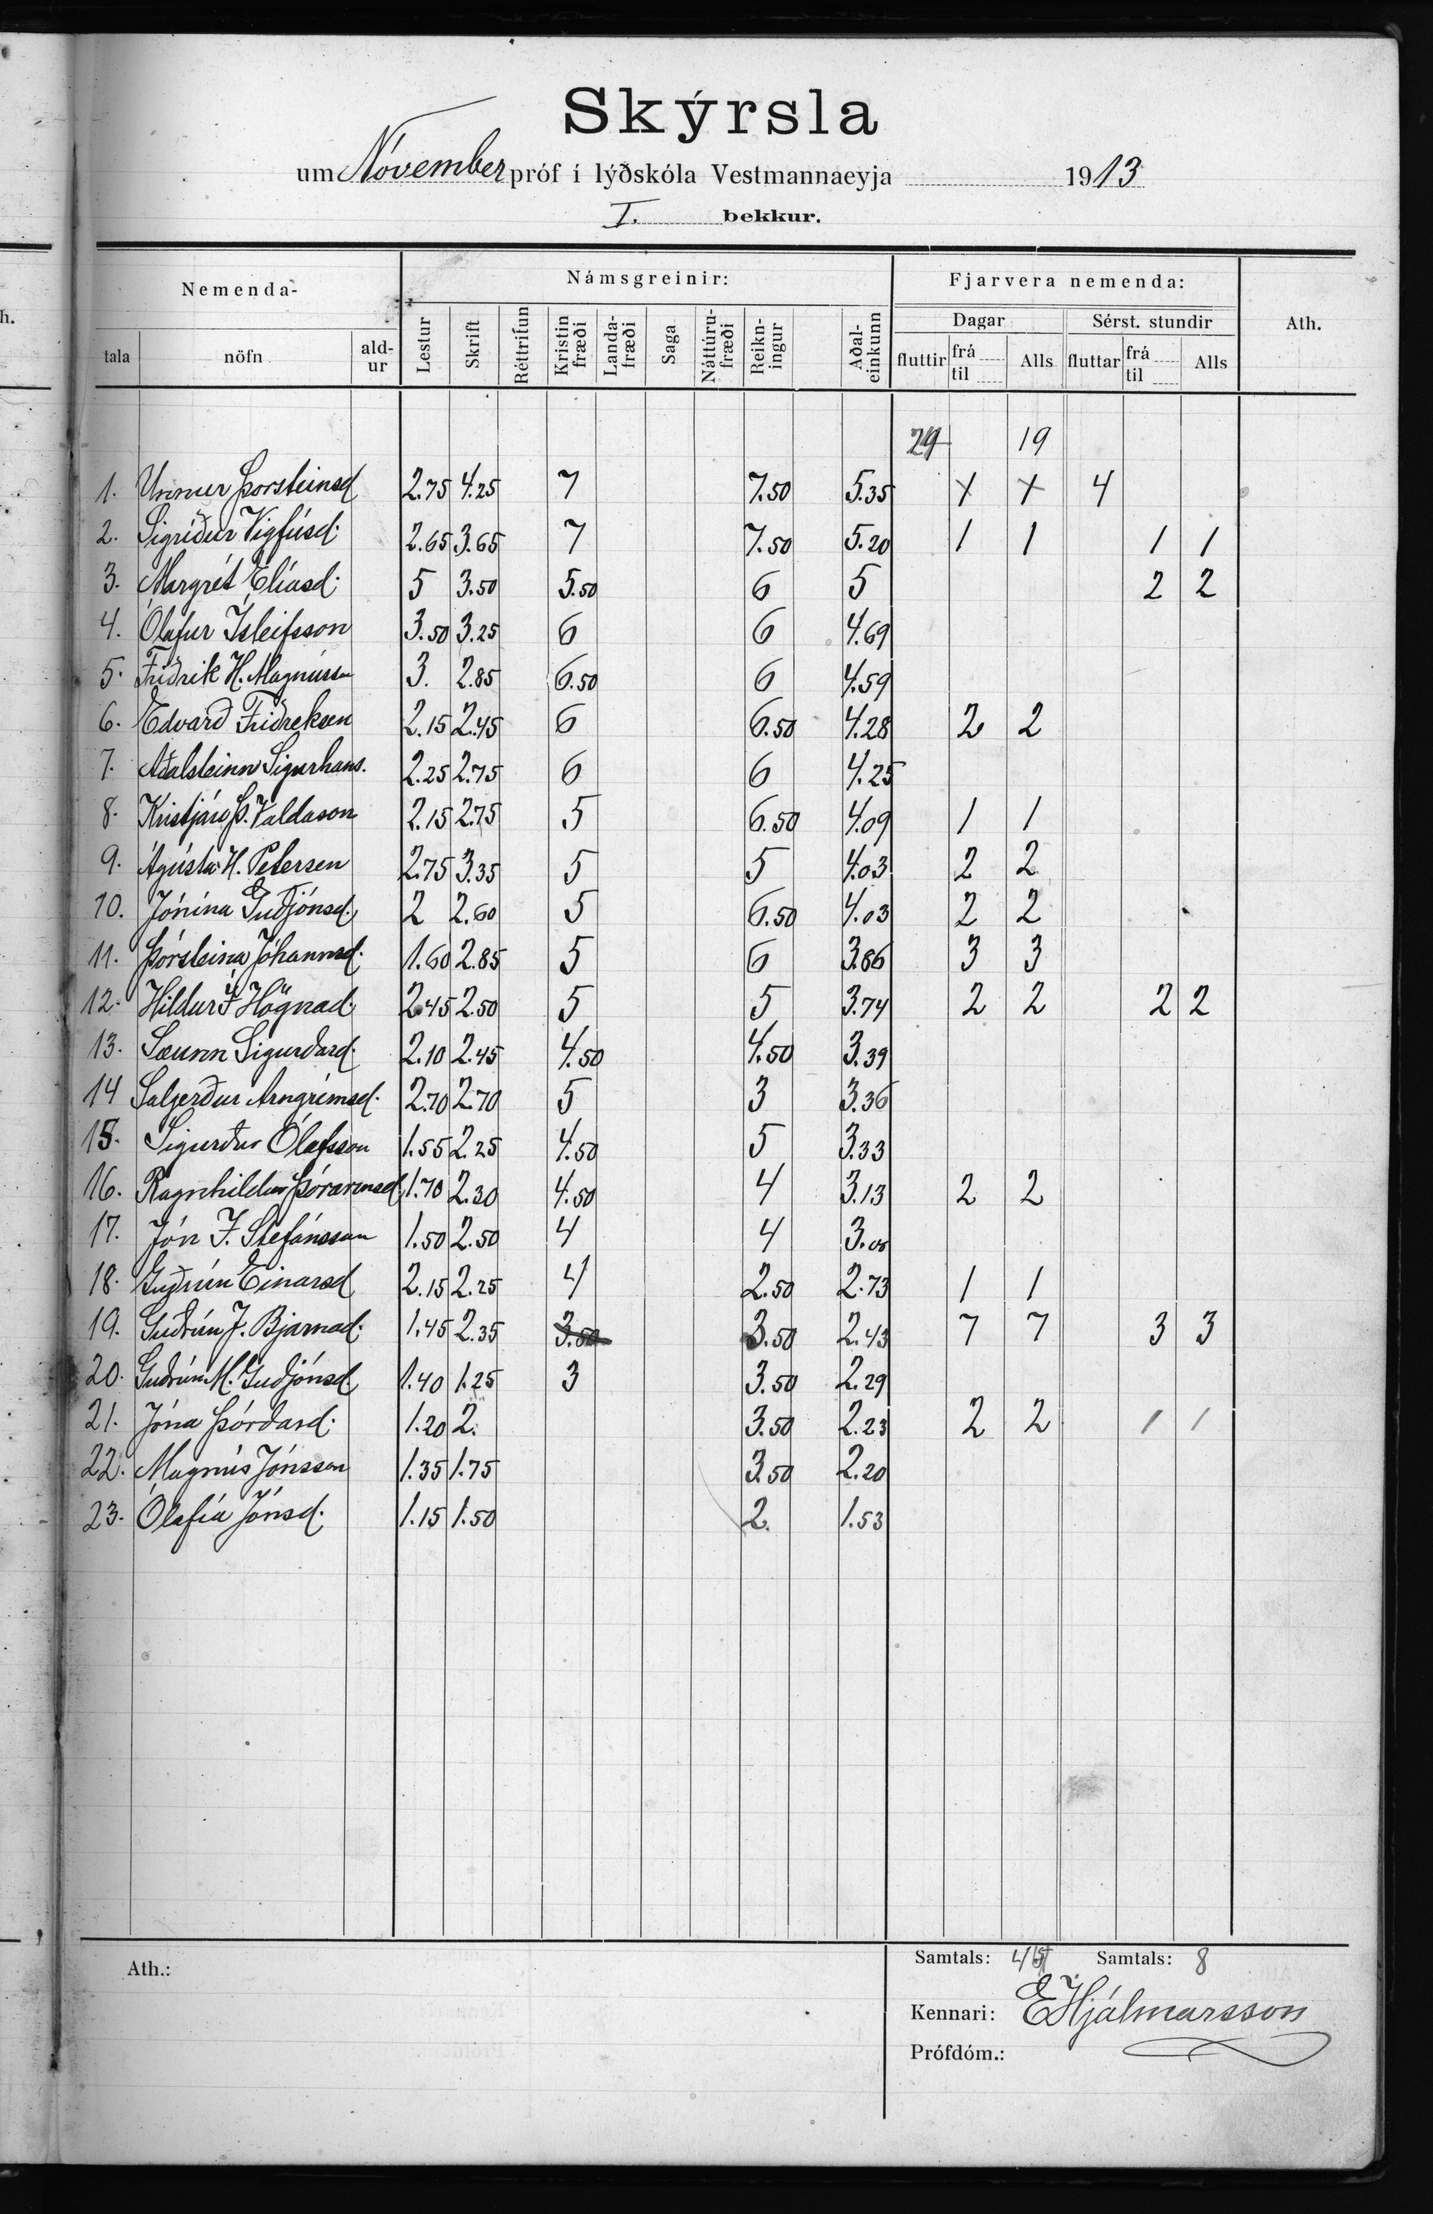 Skýrsla
um Nóvember próf í lýðskóla Vestmannaeyja 1913
I. bekkur.
Nemenda- Námsgreinir: Fjarvera nemenda: Ath.
Dagar Sérst. stundir
tala nöfn ald-ur Lestur Skrift Réttritun Kristinfræði Landafræði Saga Náttúru-fræði Reikn-ingur Aðal-einkunn fluttir frá til Alls fluttar frá til Alls
19
1. Unnur Þorsteinsd 2.75 4.25 7 7.50 5.35 4
2. Sigríður Vigfúsd. 2.65 3.65 7 7.50 5.20 1 1 1 1
3. Margrét Elíasd. 5 3.50 5.50 6 5 2 2
4. Ólafur Ísleifsson 3.50 3.25 6 6 4.69
5. Friðrik H. Magnússn 3. 2.85 6.50 6 4.59
6. Edvarð Friðreksen 2.15 2.45 6 6.50 4.28 2 2
7. Aðalsteinn Sigurhans. 2.25 2.75 6 6 4.25
8. Kristján Þ. Valdason 2.15 2.75 5 6.50 4.09 1 1
9. Ágústa H. Petersen 2.75 3.35 5 5 4.03 2 2
10. Jónína Guðjónsd. 2 2.60 5 6.50 4.03 2 2
11. Þórsteina Jóhannsd. 1.60 2.85 5 6 3.86 3 3
12. Hildur Í Högnad. 2.45 2.50 5 5 3.74 2 2 2 2
13. Sæunn Sigurðard. 2.10 2.45 4.50 4.50 3.39
14 Salgerður Arngrímsd. 2.70 2.70 5 3 3.36
15. Sigurður Ólafsson 1.55 2.25 4.50 5 3.33
16. Ragnhildur Þórarinsd. 1.70 2.30 4.50 4 3.13 2 2
17. Jón Í. Stefánsson 1.50 2.50 4 4 3.00
18. Guðrún Einarsd 2.15 2.25 4 2.50 2.73 1 1
19. Guðrún J. Bjarnad. 1.45 2.35 3.50 3.50 2.43 7 7 3 3
20. Guðrún M. Guðjónsd. 1.40 1.25 3 3.50 2.29
21. Jóna Þórðard. 1.20 2. 3.50 2.23 2 2 1 1
22. Magnús Jónsson 1.35 1.75 3.50 2.20
23. Ólafía Jónsd. 1.15 1.50 2. 1.53
Ath.: Samtals: Samtals: 8
Kennari: EHjálmarsson
Prófdóm.: